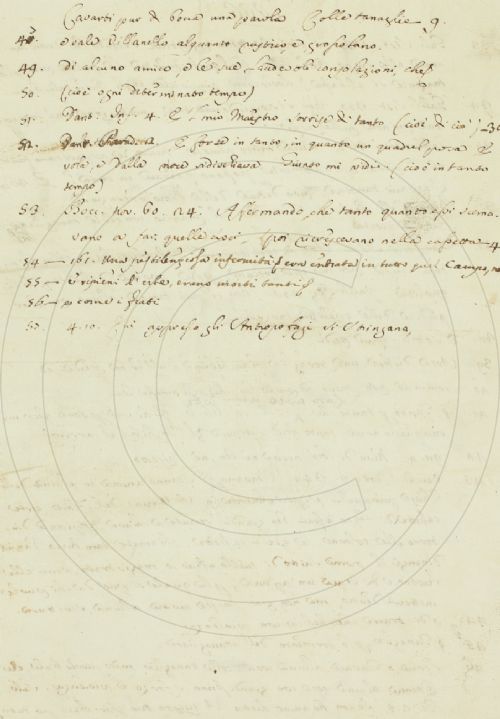 Cavarti pur di bocca una parola Colle tanaglie 9.
48. ovale dell'anello alquanto rustico, e grossolano.
49. di alcuno amico, e le sue laude consolazioni, che
50. (cioè ogni determinato tempo)
51. Dant. Inf. 4. E 'l mio Maestro sorrise di tanto (cioè di ciò)
52. Dant. E forse in tanto, in quanto un quadrel posa E
vola, e dalla noce si dischiava Giunto mi vidi (cioè in tanto
tempo)
53. Bocc. nov. 60. 24. Affermando, che tanto quanto essi scema
vano a far quelle croci, poi ricrescevano nella cassetta 4
54 — 161. Una pestilenziosa infermità era entrata in tutto quel Campo,
55 — erano morti tanti
56 — e come i frati
57. 4. 10. appresso gli Antropofagi